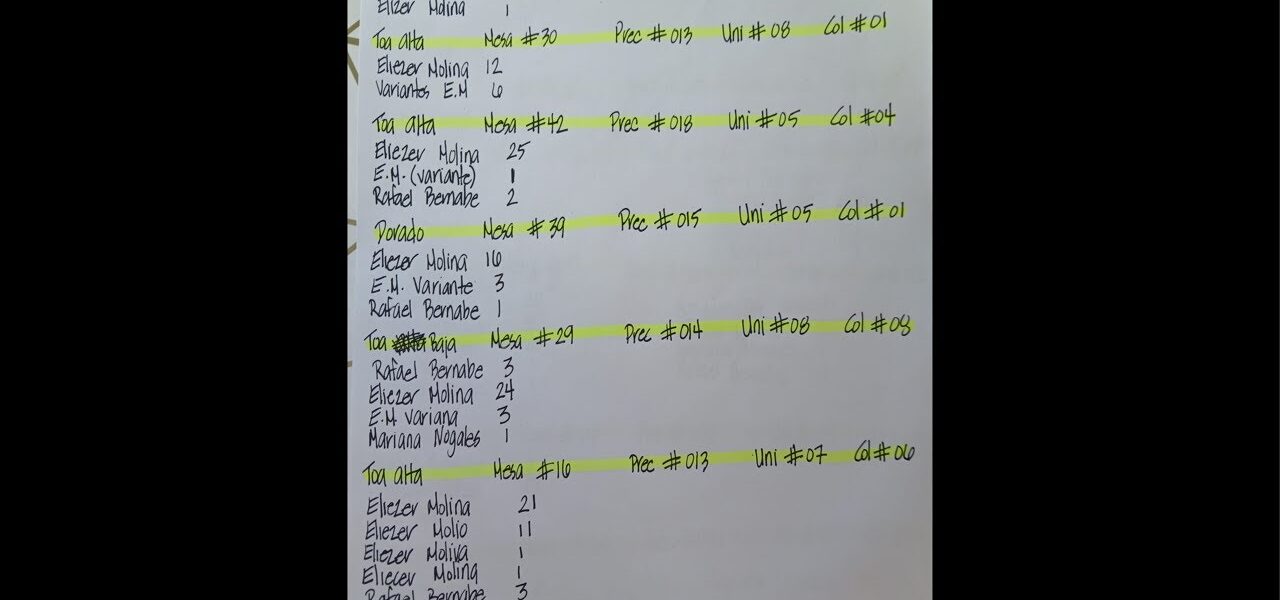 Elizer Molina 1
Toa alta Mesa #30 Prec #013 Uni #08 Col #01
Eliezer Molina 12
Variantes E.M 6
Toa alta Mesa #42 Prec #018 Uni #05 Col #04
Eliezer Molina 25
E.M. (variante) 1
Rafael Bernabe 2
Dorado Mesa #39 Prec #015 Uni #05 Col #01
Eliezer Molina 16
E.M. Variante 3
Rafael Bernabe 1
Toa Baja Mesa #29 Prec #014 Uni #08 Col #08
Rafael Bernabe 3
Eliezer Molina 24
E.M Variana 3
Mariana Nogales 1
Toa alta Mesa #16 Prec #013 Uni #07 Col #06
Eliezer Molina 21
Eliezer Molio 11
Eliezer Moliva 1
Eliecer Molina 1
Rafael Bernabe 3